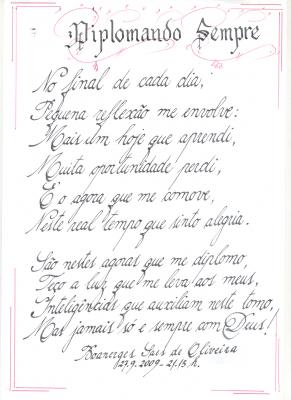 Diplomando Sempre
No final de cada dia,
Pequena reflexão me envolve:
Mais um hoje que aprendi,
Muita oportunidade perdi,
E o agora que me comove,
Neste real tempo que sinto alegria.
São nestes agoras que me diplomo,
Teço a luz que me leva aos meus,
Inteligências que auxiliam neste tomo,
Mas jamais só e sempre com Deus!
Boanerges Saes de Oliveira
27.9.2009-21:15 h.